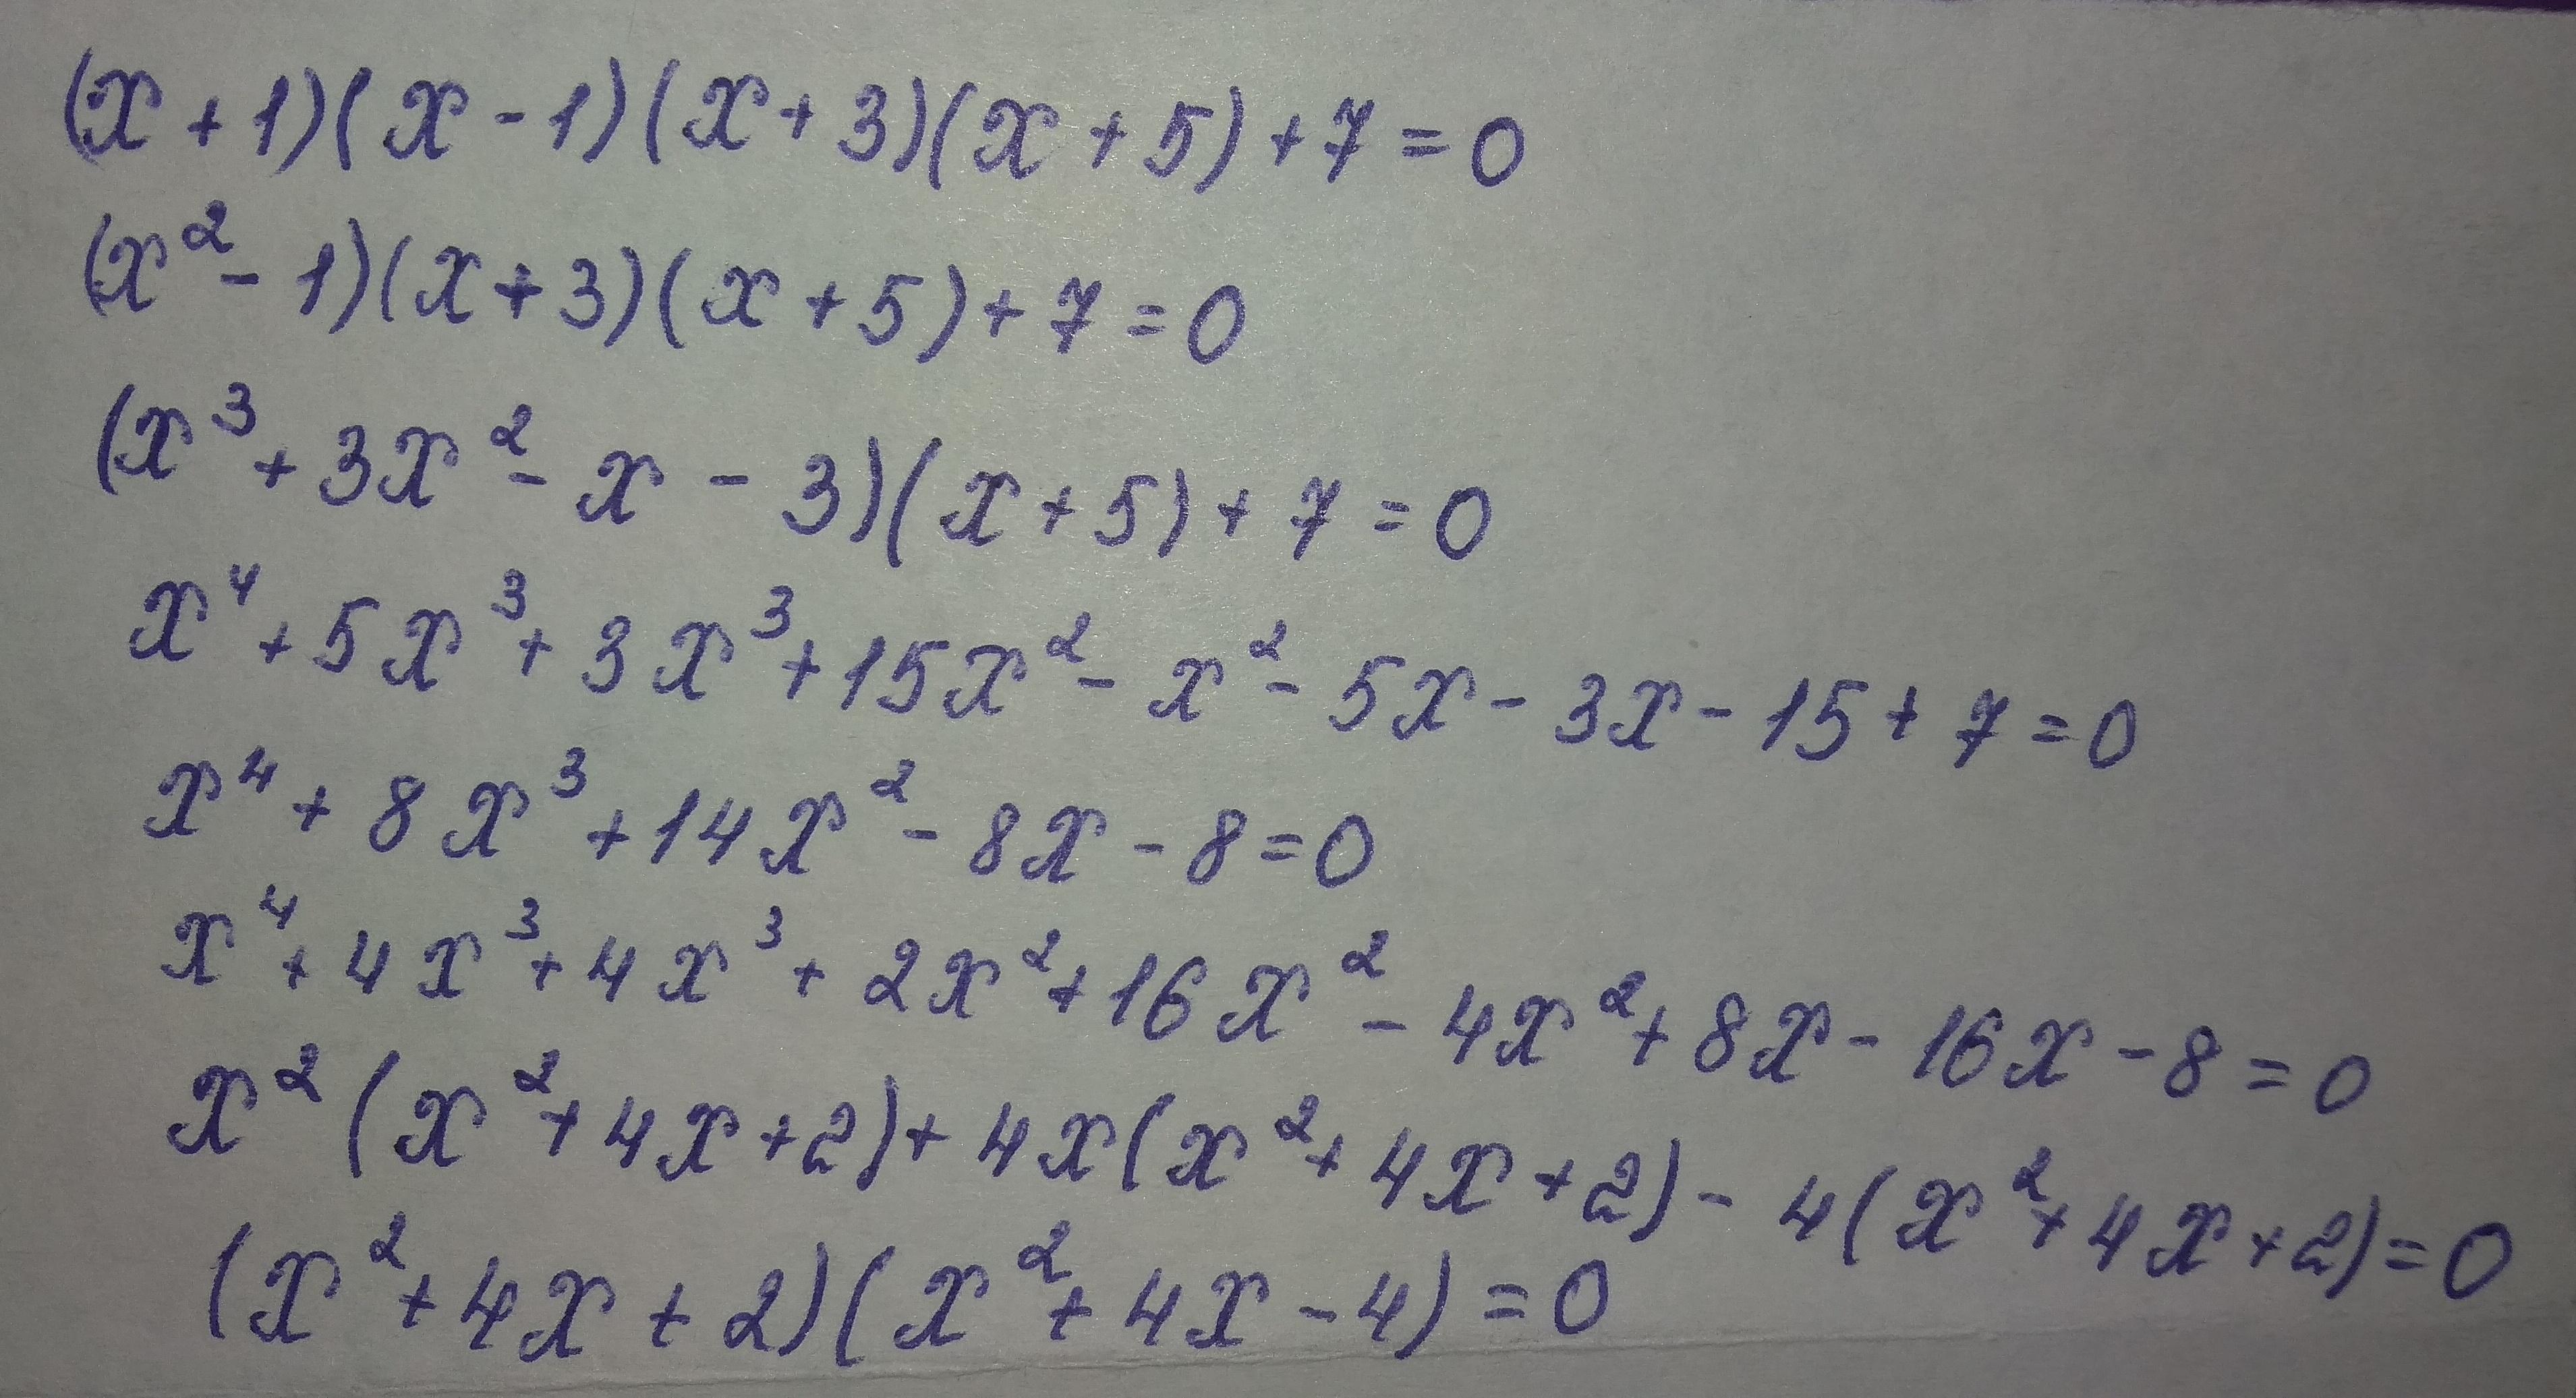 (x + 1)(x - 1)(x + 3)(x + 5) + 7 = 0
(x² - 1)(x + 3)(x + 5) + 7 = 0
(x³ + 3x² - x - 3)(x + 5) + 7 = 0
x⁴ + 5x³ + 3x³ + 15x² - x² - 5x - 3x - 15 + 7 = 0
x⁴ + 8x³ + 14x² - 8x - 8 = 0
x⁴ + 4x³ + 4x³ + 2x² + 16x² - 4x² + 8x - 16x - 8 = 0
x² (x² + 4x + 2) + 4x(x² + 4x + 2) - 4(x² + 4x + 2) = 0
(x² + 4x + 2)(x² + 4x - 4) = 0